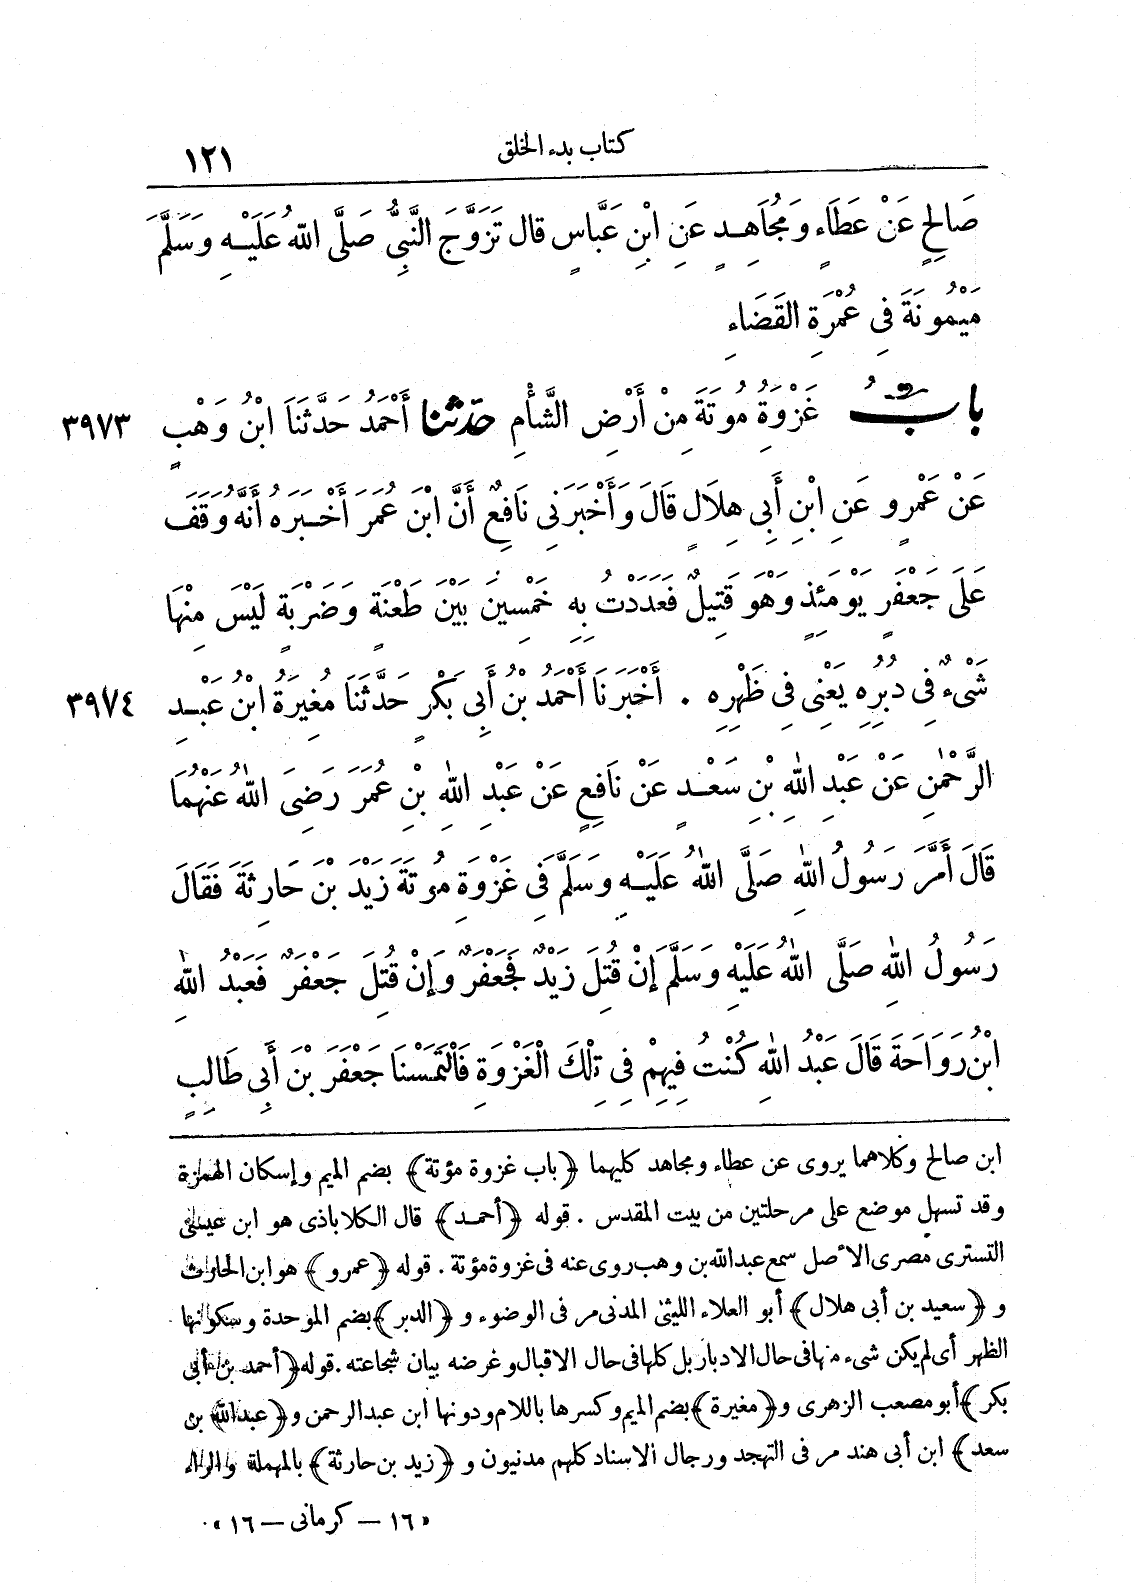 كتاب بدء الخلق ١٢١
صَالِحٍ عَنْ عَطَاءٍ وَمُجَاهِدٍ عَنِ ابْنِ عَبَّاسٍ قال تَزَوَّجَ النَّبِيُّ صَلَّى اللهُ عَلَيْهِ وَسَلَّمَ
مَيْمُونَةَ فِي عُمْرَةِ القَضَاءِ
بابُ غَزْوَةُ مُوتَةَ مِنْ أَرْضِ الشَّأْمِ حَدَّثنا أَحْمَدُ حَدَّثَنَا ابْنُ وَهْبٍ ٣٩٧٣
عَنْ عَمْرٍو عَنِ ابْنِ أَبِي هِلَالٍ قَالَ وَأَخْبَرَنِي نَافِعٌ أَنَّ ابْنَ عُمَرَ أَخْبَرَهُ أَنَّهُ وَقَفَ
عَلَى جَعْفَرٍ يَوْمَئِذٍ وَهْوَ قَتِيلٌ فَعَدَدْتُ بِهِ خَمْسِينَ بَيْنَ طَعْنَةٍ وَضَرْبَةٍ لَيْسَ مِنْهَا
شَىْءٌ فِي دُبُرِهِ يَعْنِي فِي ظَهْرِهِ . أَخْبَرَنَا أَحْمَدُ بْنُ أَبِي بَكْرٍ حَدَّثَنَا مُغِيرَةُ ابْنُ عَبْدِ ٣٩٧٤
الرَّحْمٰنِ عَنْ عَبْدِ اللهِ بْنِ سَعْدٍ عَنْ نَافِعٍ عَنْ عَبْدِ اللهِ بْنِ عُمَرَ رَضِيَ اللهُ عَنْهُمَا
قَالَ أَمَّرَ رَسُولُ اللهِ صَلَّى اللهُ عَلَيْهِ وَسَلَّمَ فِي غَزْوَةِ مُوتَةَ زَيْدَ بْنَ حَارِثَةَ فَقَالَ
رَسُولُ اللهِ صَلَّى اللهُ عَلَيْهِ وَسَلَّمَ إِنْ قُتِلَ زَيْدٌ فَجَعْفَرٌ وَإِنْ قُتِلَ جَعْفَرٌ فَعَبْدُ اللهِ
ابْنُ رَوَاحَةَ قَالَ عَبْدُ اللهِ كُنْتُ فِيهِمْ فِي تِلْكَ الْغَزْوَةِ فَالْتَمَسْنَا جَعْفَرَ بْنَ أَبِي طَالِبٍ
ابن صالح وكلاهما يروى عن عطاء ومجاهد كليهما ﴿باب غزوة مؤتة﴾ بضم الميم وإسكان الهمزة
وقد تسهل موضع على مرحلتين من بيت المقدس . قوله ﴿أحمد﴾ قال الكلاباذى هو ابن عيسى
التسترى مصرى الأصل سمع عبدالله بن وهب روى عنه فى غزوة مؤتة . قوله ﴿عمرو﴾ هو ابن الحارث
و﴿سعيد بن أبى هلال﴾ أبو العلاء الليثى المدنى مر فى الوضوء و﴿الدبر﴾ بضم الموحدة وسكونها
الظهر أى لم يكن شىء منها فى حال الادبار بل كلها فى حال الاقبال وغرضه بيان شجاعته . قوله ﴿أحمد بن أبى
بكر﴾ أبو مصعب الزهرى و﴿مغيرة﴾ بضم الميم وكسرها باللام ودونها ابن عبد الرحمن و﴿عبد الله بن
سعد﴾ ابن أبى هند مر فى التهجد ورجال الاسناد كلهم مدنيون و﴿زيد بن حارثة﴾ بالمهملة والراء
«١٦ – كرمانى – ١٦»